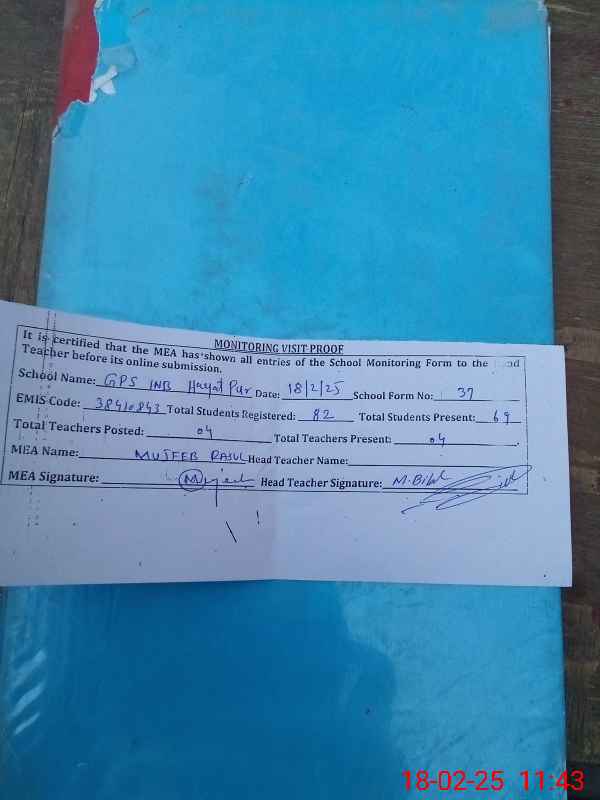 MONITORING VISIT PROOF
It is certified that the MEA has shown all entries of the School Monitoring Form to the
Teacher before its online submission.
School Name: GPS INB Hayat Pur Date: 18/2/25 School Form No: 37
EMIS Code: 38410843 Total Students Registered: 82 Total Students Present: 69
Total Teachers Posted: 04 Total Teachers Present: 04
MEA Name: MUJEEB RASUL Head Teacher Name:
MEA Signature: Mujeeb Head Teacher Signature: M.Bilal
18-02-25 11:43